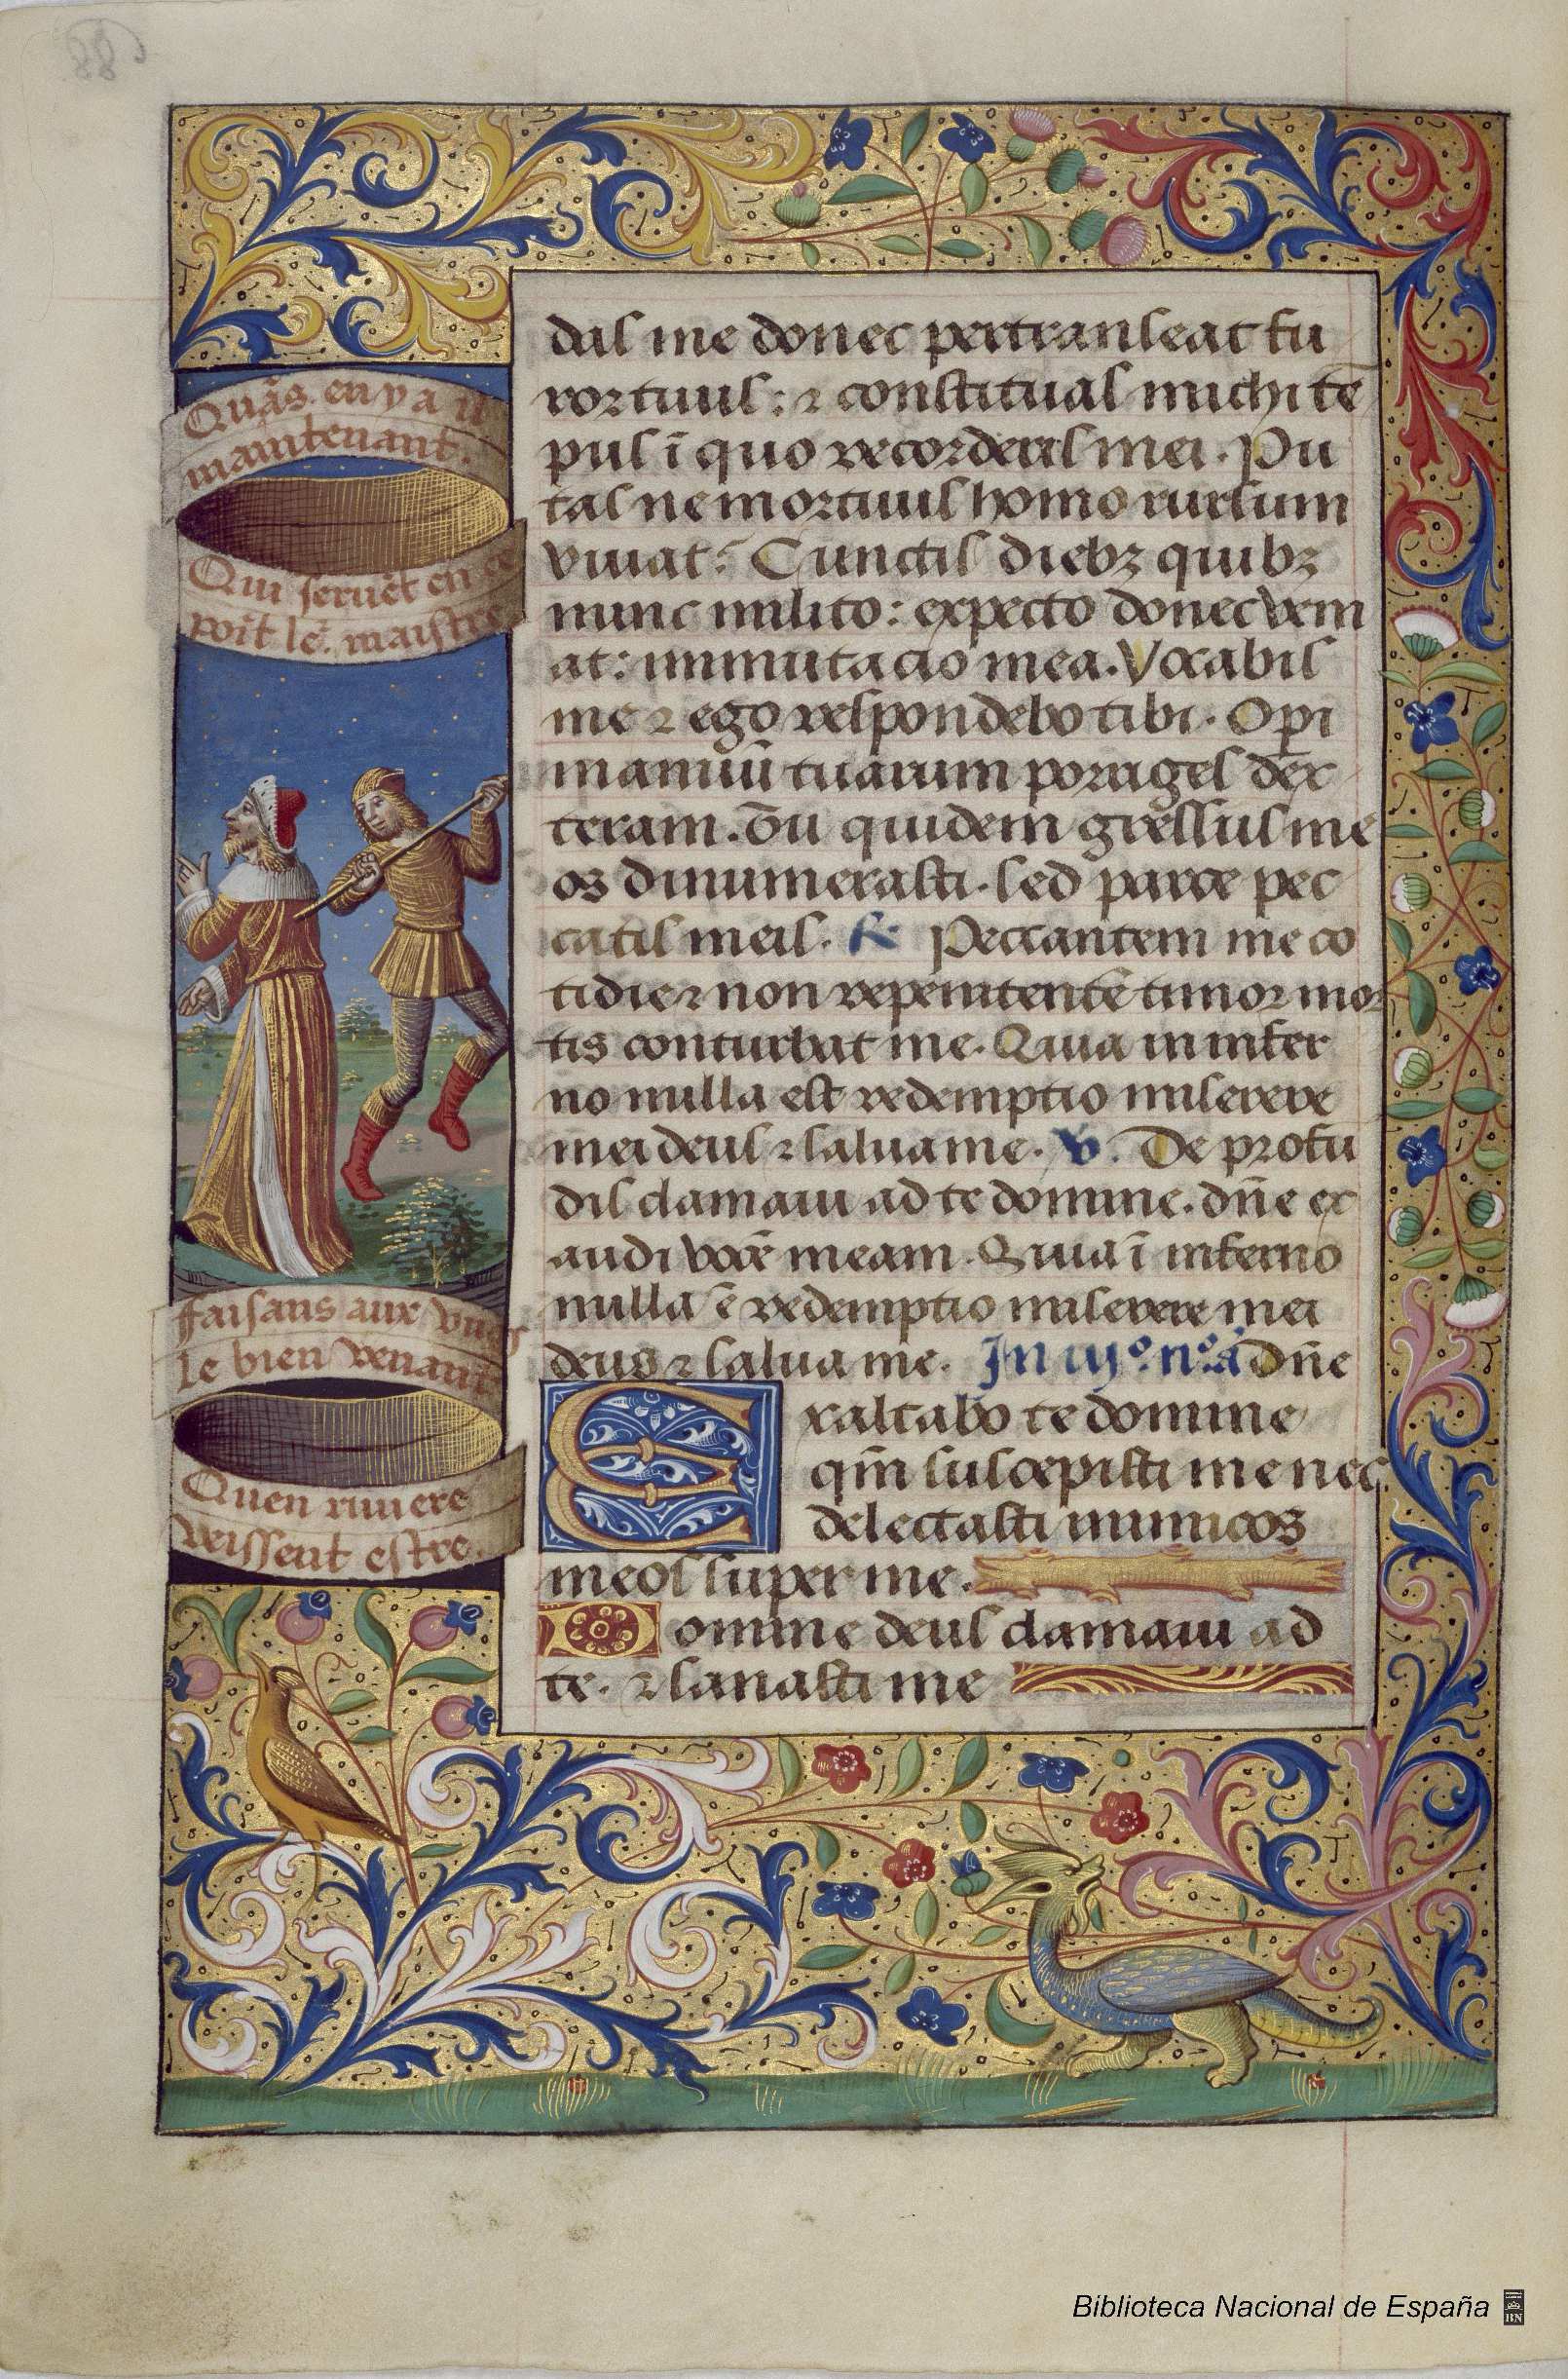 Quãs en y a il
maintenant.
Qui seruẽt en ce
poĩt lẽ maistre
faisans aux vngs
le bien venant
Quen riuiere
veissent estre.
das me donec pertranseat fu
ror tuus: ⁊ constituas michi tẽ
pus ĩ quo recorderis mei. Pu
tas ne mortuus homo rursum
viuat? Cunctis diebꝫ quibꝫ
nunc milito: expecto donec veni
at: immutacio mea. Vocabis
me ⁊ ego respondebo tibi. Opi
manuũ tuarum porriges dex
teram. Tu quidem gressus me
os dinumerasti. sed parce pec
catis meis. ℟. Peccantem me co
tidie ⁊ non repenitentẽ timor mor
tis conturbat me. Quia in infer
no nulla est redemptio miserere
mei deus ⁊ salua me. v. De profũ
dis clamaui ad te domine. dñe ex
audi vocẽ meam. Quia ĩ inferno
nulla ẽ redemptio miserere mei
deus ⁊ salua me. In iijº. nº. a dñe
Exaltabo te domine
qm̃ suscepisti me nec
delectasti inimicos
meos super me.
Domine deus clamaui ad
te. ⁊ sanasti me
Biblioteca Nacional de España
BN